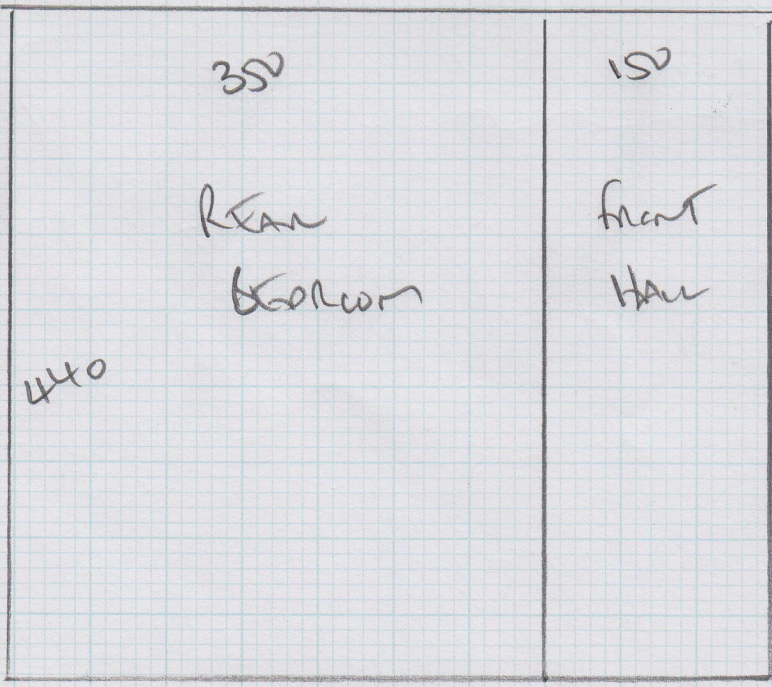 350
150
REAR
BEDROOM
FRONT
HALL
440